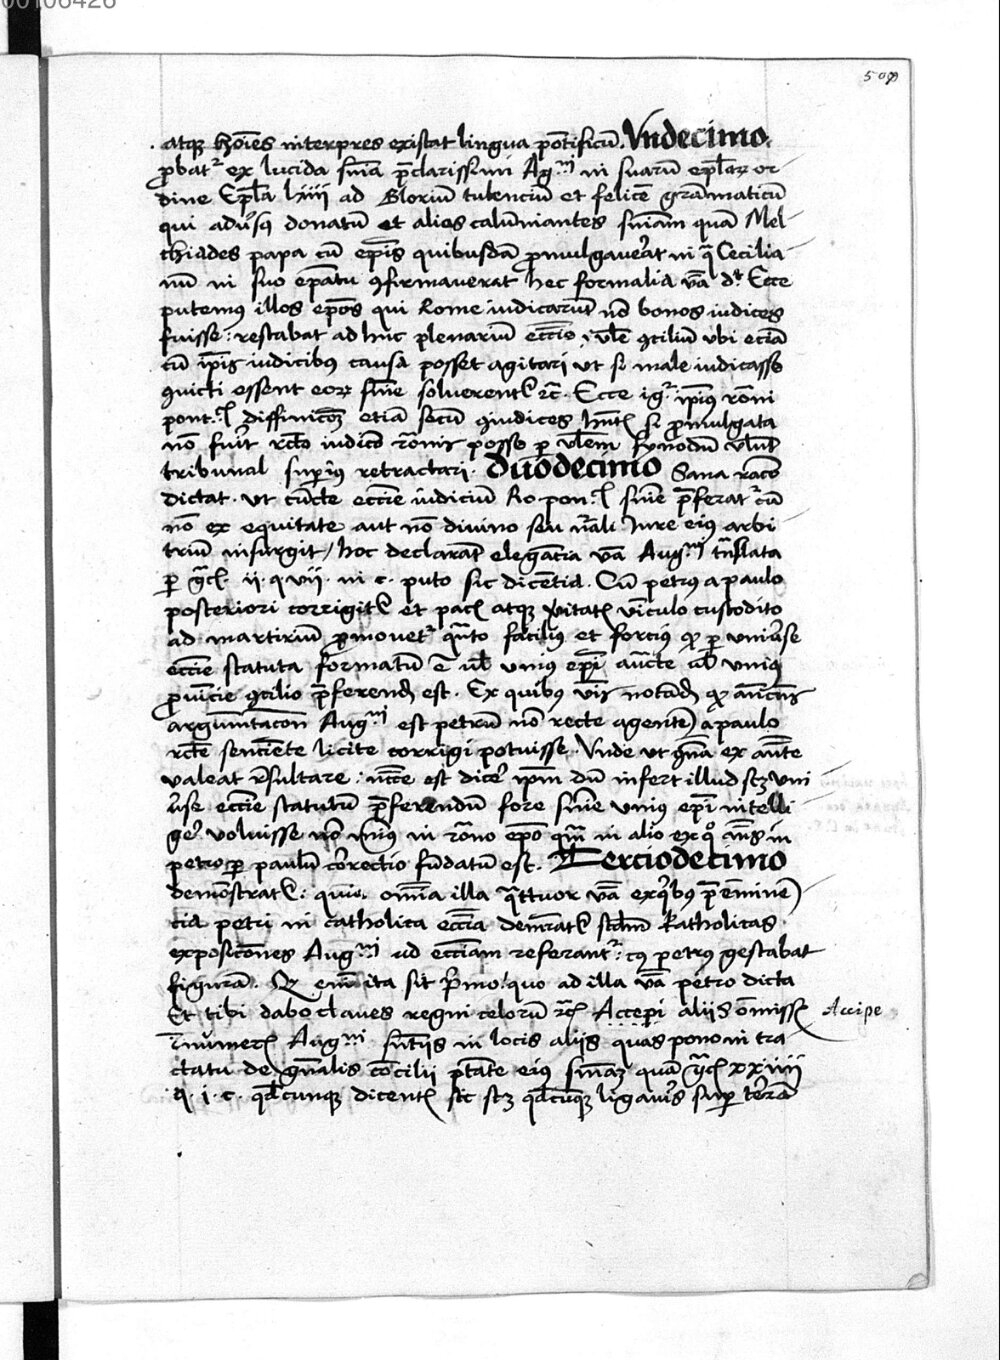 00106426
509
atqꝫ hoı̄es interpres existat lingua pōtificū. Vndecimo.
ꝓbatᷣ ex lucida sn̄ia p̄clarissimi Augᵐⁱ in suarū ep̄laꝝ or
dine Ep̄la lxiii ad Glorıū eulenciū et felicē gramaticū
qui adūsꝰ donatū et alios calūniantes sn̄iam quā Mel
chiades papa cū ep̄is quibusdā ꝓmulgauēat in q̄ Cecilia
nū in suo ep̄atu ꝯfirmauerat hec formalia v̄a dt̄ Ecce
putemꝰ illos ep̄os qui Rome iudicarūt nō bonos iudices
fuisse: restabat ad huc plenariū eccīe vl̄e ꝯciliū vbi eciā
cū ip̄is iudicibꝰ causa posset agitari ut si male iudicasse
ꝯuicti essent eoꝝ sn̄ie soluerentᷣ ꝛc̄. Ecce igᷣ ip̄ius ro̅ni
pont. diffinicōꝫ etiā secū ꝯiudices hn̄tꝭ si ꝓmulgata
nō fuīt rc̄to iudicō rōnis posse ꝑ vl̄em synodū vl̄uꝫ
tribunal sup̄iꝰ retractari. Duōdecimo Sana racō
dictat. ut cūcte eccīe iudiciū Ro pon. sn̄ie p̄feratᷣ cū
nō ex equitate aut nō diuino seu nāli Iure eiꝰ arbi
triū insurgit/ hoc declarat elegācia v̄a Augᵐⁱ tn̄slata
ꝑ Gc̄l. ii. q vii. in c. puto sic dicētia. Cū petrus a paulo
posteriori corrigitᷣ et pacꝭ atqꝫ vnitatꝭ vīculo custodito
ad martiriū ꝓmouetᷣ qn̄to faciliꝰ et forciꝰ qᷓ ꝑ vniūse
eccīe statuta formatū ē ul̄ vnius ep̄i aūcte ul̄ vniꝰ
ꝓuīcie ꝯcilio p̄ferendꝫ est. Ex quibus v̄is notādꝫ qꝫ an̄cn̄s
argumn̄tacōn Augᵐⁱ est petrum nō recte agentē a paulo
rc̄te senciēte licite corrigi potuisse. Vnde ut ꝯn̄a ex an̄te
valeat rn̄sultare: nc̄ce est dicē ip̄m dū infert illud scꝫ vni
ūse eccīe statutū p̄ferendum fore sn̄ie vnius ep̄i intelli
gē voluisse nō minꝰ in rōno ep̄o qm̄ in alio ex qͦ an̄s in
petro ꝑ paulū cōrectio fūdatū est. Terciodecimo
demōstratᷣ: quia om̄ia illa q̄ttuor v̄a ex qͥbꝰ p̄eminē
cia petri in catholica eccīa demratᷣ scdm̄ katholicas
exposicōnes Augᵐⁱ ad eccīam referantᷣ: cꝰ petrus gestabat
figurā. Qꝫ em̄ ita sit p̄mo quo ad illa v̄a petro dicta
Et tibi dabo claues regni celorū ꝛc̄ Accepi aliis ōmissꝭ Accipe
īnumerꝭ Augᵐⁱ sn̄tiis in locis aliis quas pono in tra
ctatu de gn̄alis cōcilii ptāte eiꝰ sn̄iaꝫ quā Gc̄l xxiiii
q. i. c. qd̄cunqꝫ dicentꝭ sic scꝫ qd̄cūqꝫ ligauīs sup terrā